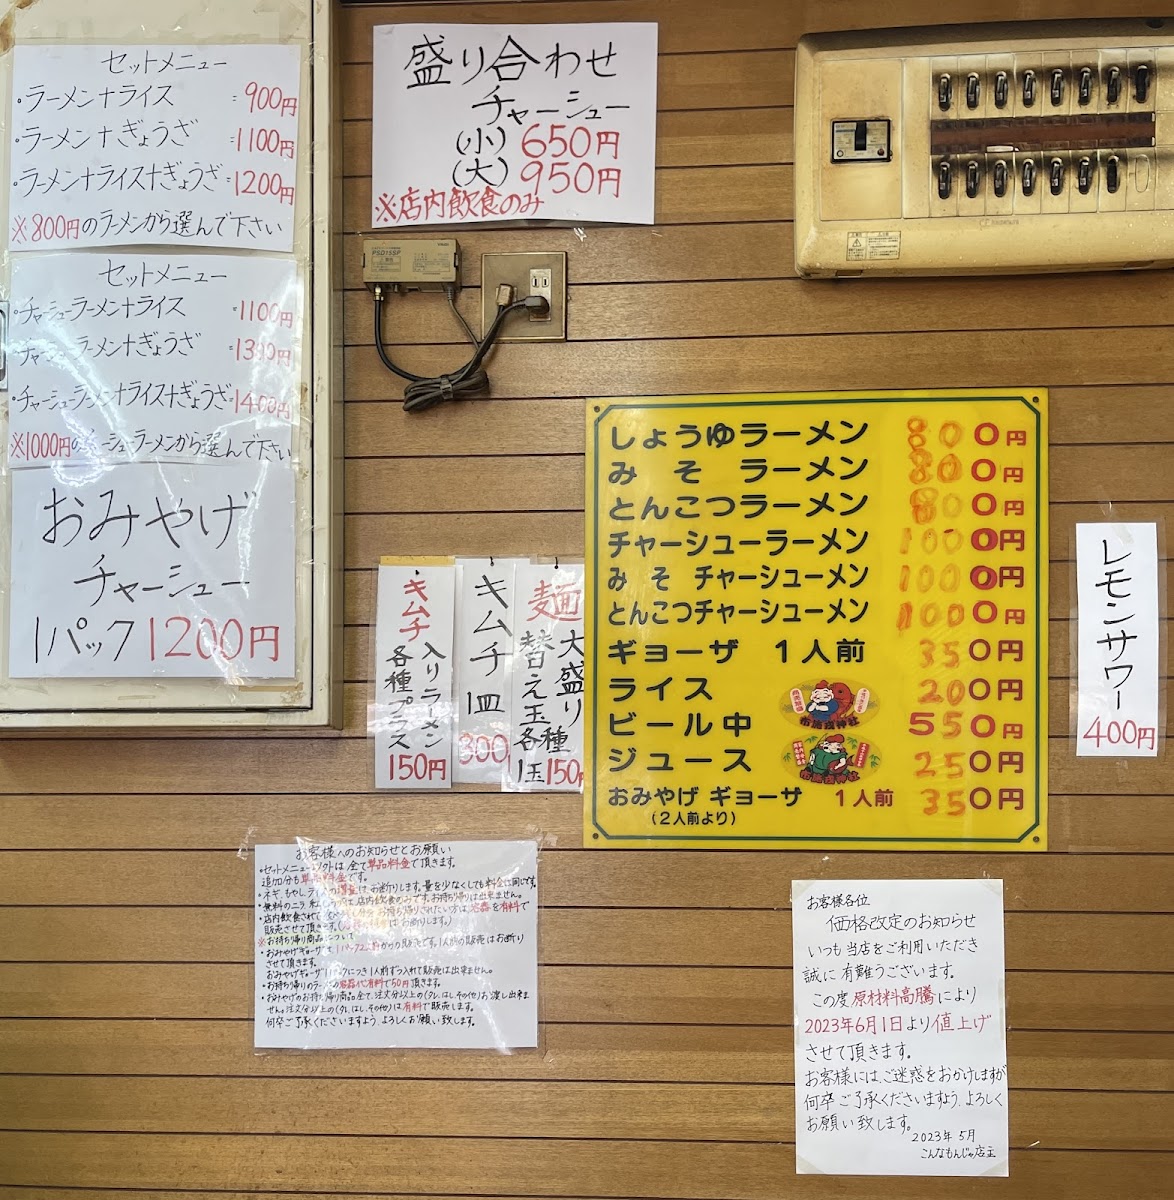 セットメニュー
・ラーメン+ライス = 900円
・ラーメン+ぎょうざ =1100円
・ラーメン+ライス+ぎょうざ=1200円
※800円のラーメンから選んで下さい
セットメニュー
・チャーシューラーメン+ライス =1100円
・チャーシューラーメン+ぎょうざ =1300円
・チャーシューラーメン+ライス+ぎょうざ=1400円
※1000円のチャーシューラーメンから選んで下さい
おみやげ
チャーシュー
1パック1200円
盛り合わせ
チャーシュー
(小)650円
(大)950円
※店内飲食のみ
PSD15SP
キムチ入りラーメン
各種プラス
150円
キムチ
1皿
300
麺大盛り
替え玉各種
1玉150
しょうゆラーメン 800円
みそラーメン 800円
とんこつラーメン 800円
チャーシューラーメン 1000円
みそ チャーシューメン 1000円
とんこつチャーシューメン 1000円
ギョーザ 1人前 350円
ライス 200円
ビール中 550円
ジュース 250円
おみやげ ギョーザ 1人前 350円
(2人前より)
レモンサワー
400円
お客様へのお知らせとお願い
・セットメニュー以外は、全て単品料金で頂きます。
追加分も単品料金です。
・ネギ、もやし、ライスの増量は、お断りします。量を少なくしても料金は同じです。
販売させて頂きます。
※お持ち帰り商品について
・おみやげギョーザは、1パック2人前からの販売です。1人前の販売はお断り
させて頂きます。
おみやげギョーザ1パックにつき1人前ずつ入れて販売は出来ません。
・お持ち帰りのラーメンの容器代有料で50円頂きます。
・おみやげのお持ち帰り商品全て、注文分以上の(タレ、はし、その他)お渡し出来ま
せん。注文分以上の(タレ、はし、その他)は有料で販売します。
何卒ご了承くださいますよう、よろしくお願い致します。
お客様各位
価格改定のお知らせ
いつも当店をご利用いただき
誠に有難うございます。
この度原材料高騰により
2023年6月1日より値上げ
させて頂きます。
お客様には、ご迷惑をおかけしますが
何卒ご了承くださいますよう、よろしく
お願い致します。
2023年5月
こんなもんじゃ店主